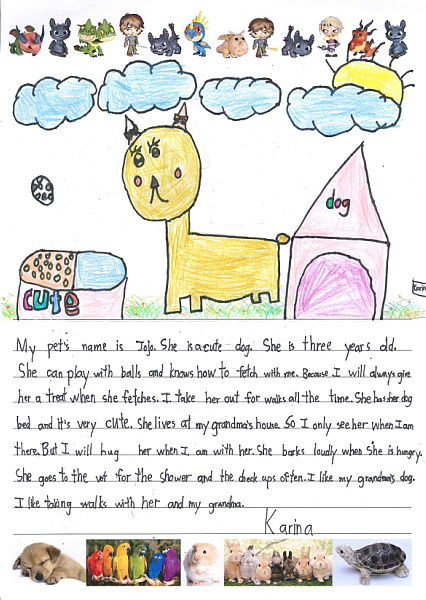 dog
Karina
cute
My pet's name is Jojo. She is a cute dog. She is three years old.
She can play with balls and knows how to fetch with me. Because I will always give
her a treat when she fetches. I take her out for walks all the time. She has her dog
bed and it's very cute. She lives at my grandma's house. So I only see her when I am
there. But I will hug her when I am with her. She barks loudly when she is hungry.
She goes to the vet for the shower and the check ups often. I like my grandma's dog.
I like taking walks with her and my grandma.
Karina